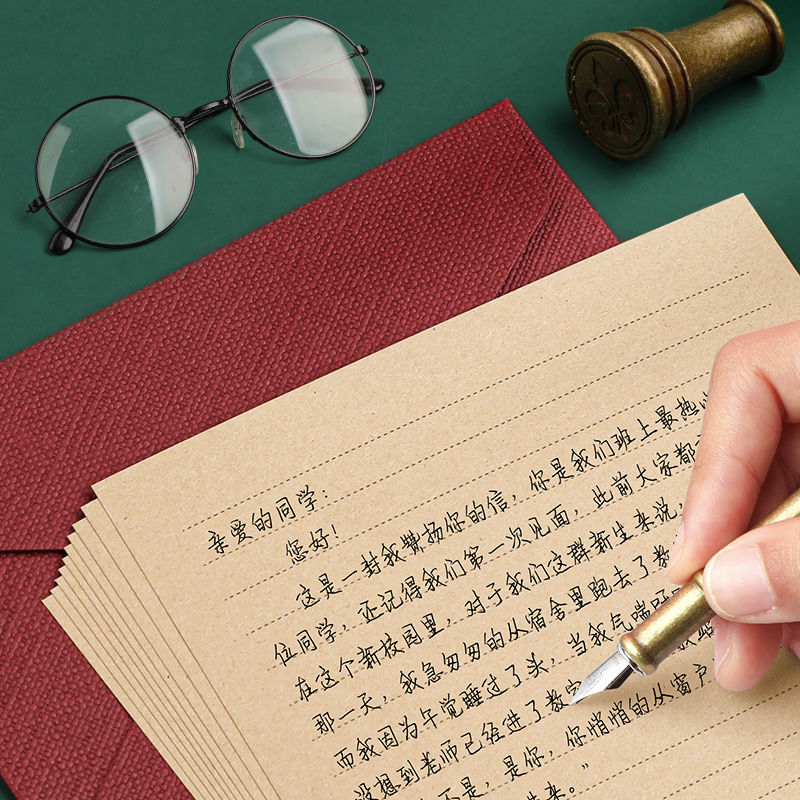 亲爱的同学：
您好！
这是一封我赞扬你的信，你是我们班上最热
位同学，还记得我们第一次见面，此前大家都
在这个新校园里，对于我们这群新生来说，
那一天，我急匆匆的从宿舍里跑去了教
而我因为午觉睡过了头，当我气喘吁
没想到老师已经进了教室
不是，是你，你悄悄的从窗户
来。”